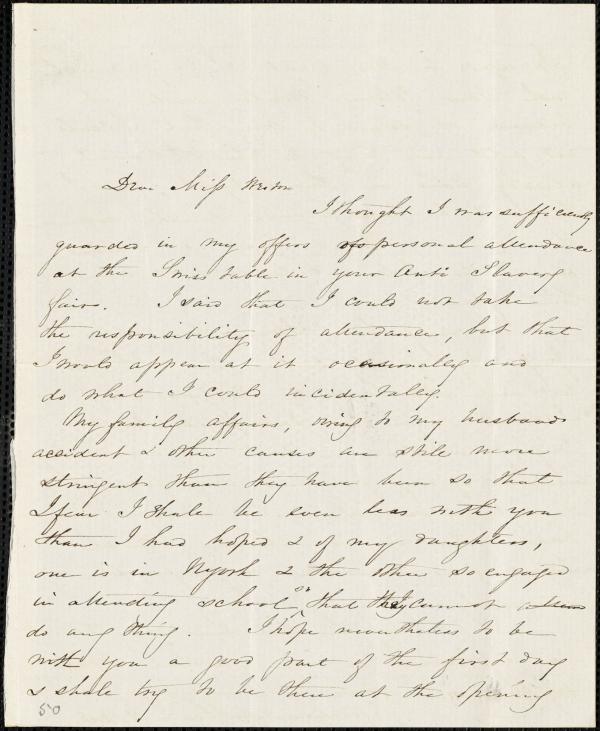 Dear Miss Weston
I thought I was sufficiently
guarded in my offers of personal attendance
at the Swiss table in your Anti Slavery
fair. I said that I could not take
the responsibility of attendance, but that
I would appear at it ocasionally and
do what I could incidentally.
My family affairs, owing to my husbands
accident & other causes are still more
stringent than they have been so that
I fear I shall be even less with you
than I had hoped & of my daughters,
one is in NYork & the other so engaged
in attending school that they cannot
do any thing. I hope nevertheless to be
with you a good part of the first day
& shall try to be there at the opening
50